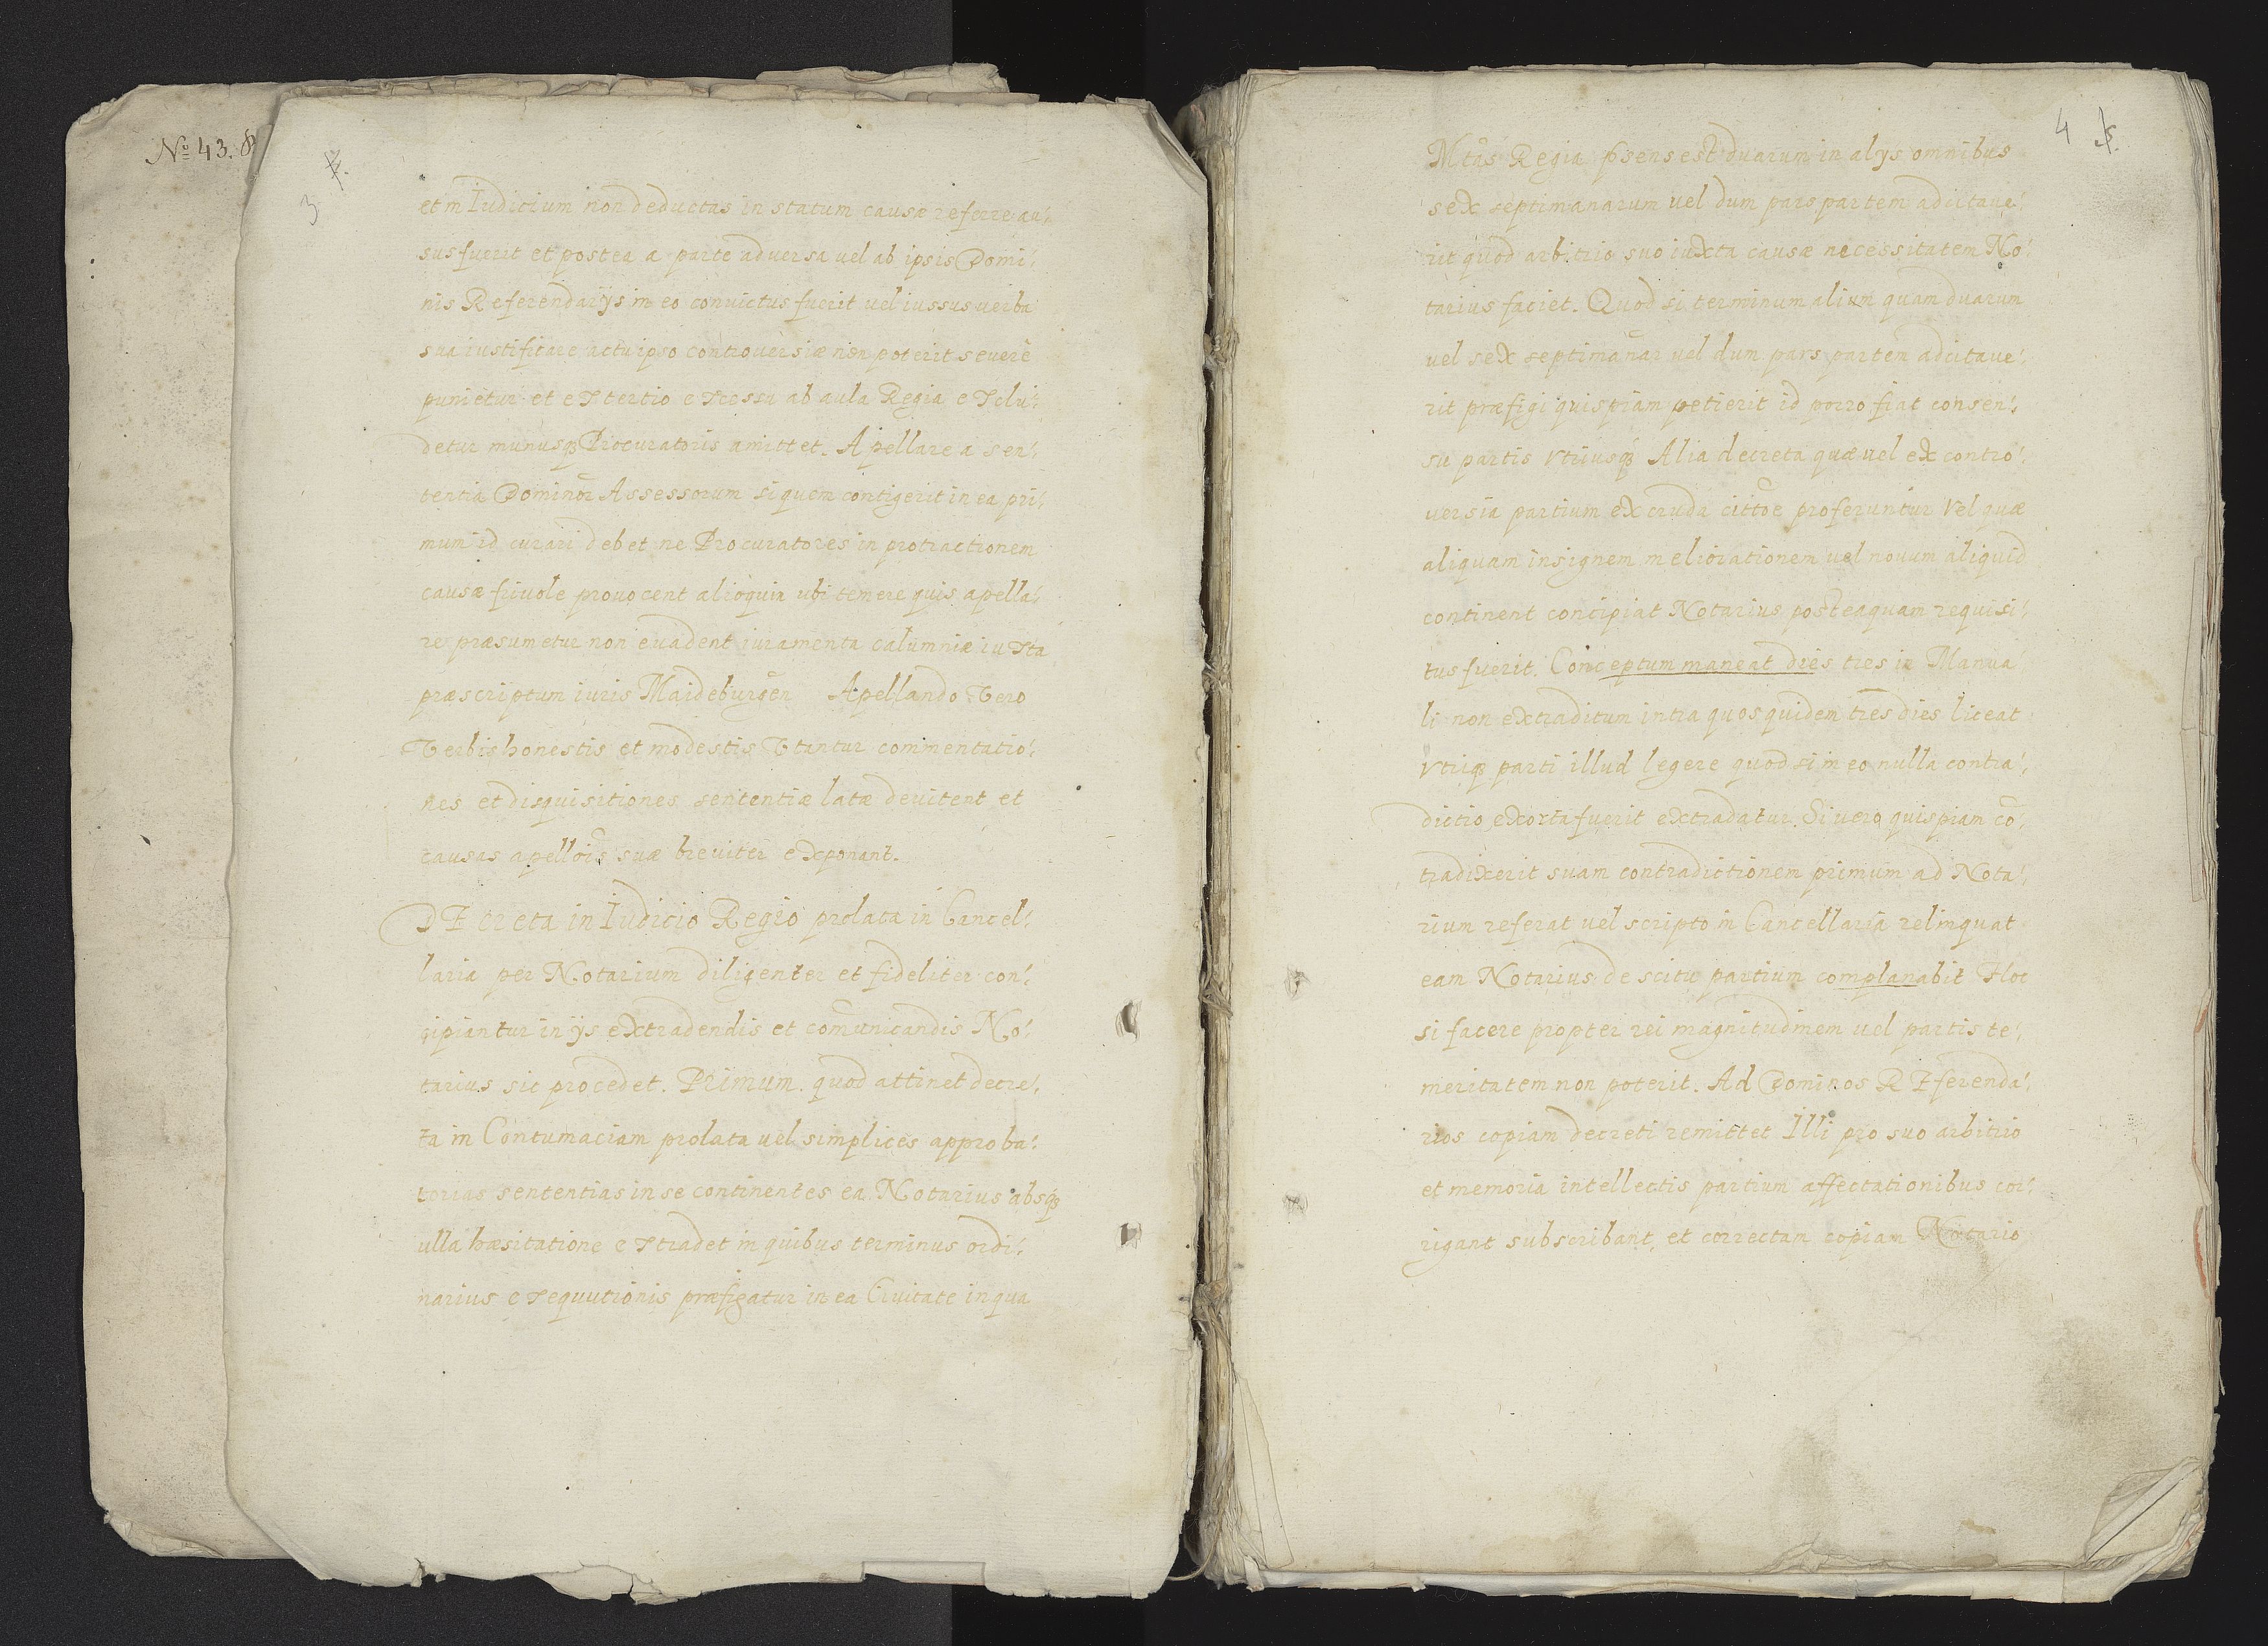 No 43. 8
3
et in Iudicium non deductas in statum causæ referre au:
sus fuerit et postea a parte adversa vel ab ipsis Domi:
nis Referendarÿs in eo convictus fuerit vel iussus verba
sua iustificare actu ipso controversiæ non poterit severè
punietur et extertio excessu ab aula Regia exclu:
detur munusq Procuratoris amittet. Apellare a sen:
tentia Dominor Assessorum si quem contigerit in ea pri:
mum id curari debet ne Procuratores in protractionem
causæ frivole provocent alioquin ubi temere quis apella:
re præsumetur non evadent iuramenta calumniæ iuxta
præscriptum iuris Maideburgen Apellando Vero
Verbis honestis et modestis Vtantur commentatio:
nes et disquisitiones sententiæ latæ devitent et
causas apellois suæ breviter exponant.
DEcreta in Iudicio Regio prolata in Cancel:
laria per Notarium diligenter et fideliter con:
cipiantur in ÿs extradendis et comunicandis No:
tarius sic procedet. Primum. quod attinet decre:
ta in Contumaciam prolata vel simplices approba:
torias sententias in se continentes ea Notarius absq
ulla hæsitatione extradet in quibus terminus ordi:
narius exequutionis præfigatur in ea Civitate in qua
4
Mtas Regia psens est duarum in alys omnibus
sex septimanarum vel dum pars partem adcitave:
rit quod arbitrio suo iuxta causæ necessitatem No:
tarius faciet. Quod si terminum alium quam duarum
vel sex septimanar vel dum pars partem adcitave:
rit præfigi quispiam petierit id porro fiat consen:
su partis Vtriusq Alia decreta quæ vel ex contro:
versia partium ex cruda cittoe proferuntur Vel quæ
aliquam insignem meliorationem vel novum aliquid
continent concipiat Notarius posteaquam requisi:
tus fuerit. Conceptum maneat dies tres in Manua
li non extraditum intra quos quidem tres dies liceat
Vtriq parti illud legere quod si in eo nulla contra:
dictio exorta fuerit extradatur. Si vero quispiam co:
tradixerit suam contradictionem primum ad Nota:
rium referat vel scripto in Cancellaria relinquat
eam Notarius de scitu partium complanabit Hoc
si facere propter rei magnitudinem vel partis te:
meritatem non poterit. Ad Dominos REferenda:
rios copiam decreti remittet Illi pro suo arbitrio
et memoria intellectis partium affectationibus cor:
rigant subscribant, et correctam copiam Notario